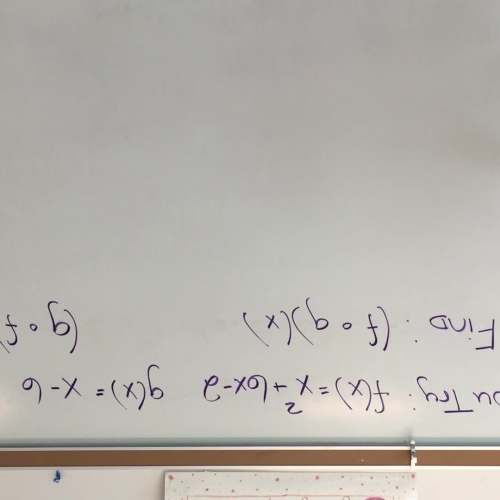 ou Try: f(x) = x² + 6x - 2 g(x) = x - 6
FIND: (f ∘ g)(x) (g ∘ f